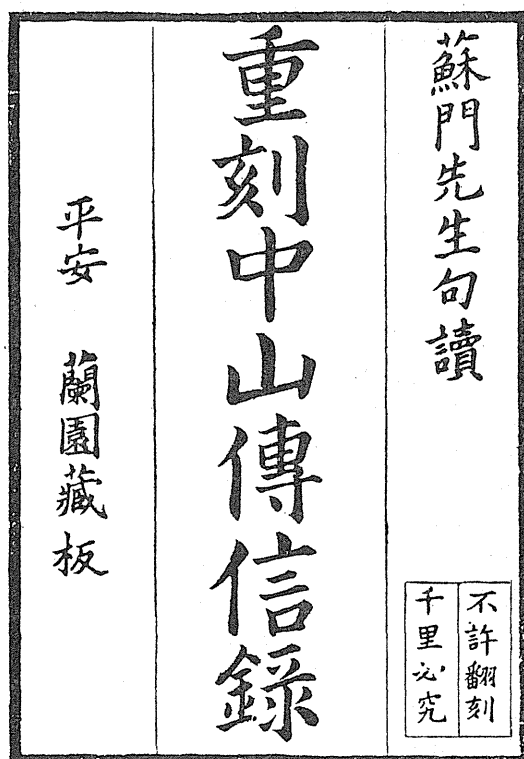 蘇門先生句讀
不許翻刻
千里必究
重刻中山傳信錄
平安 蘭園藏板